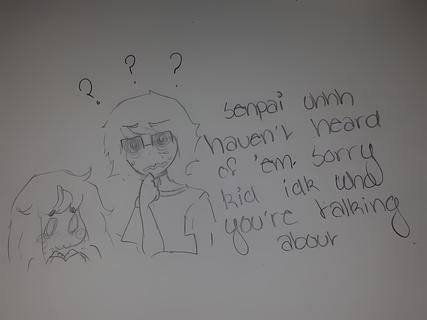 ? ? ?
senpai uhhh
haven't heard
of 'em. sorry
kid idk who
you're talking
about